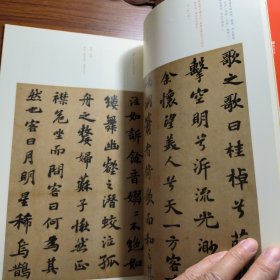 歌之歌曰桂棹兮蘭
擊空明兮泝流光渺
余懷望美人兮天一方客
洞簫者倚歌而和之
泣如訴餘音嫋嫋不絕如
縷舞幽壑之潛蛟泣孤
舟之嫠婦蘇子愀然正
襟危坐而問客曰何為其
然也客曰月明星稀烏鵲